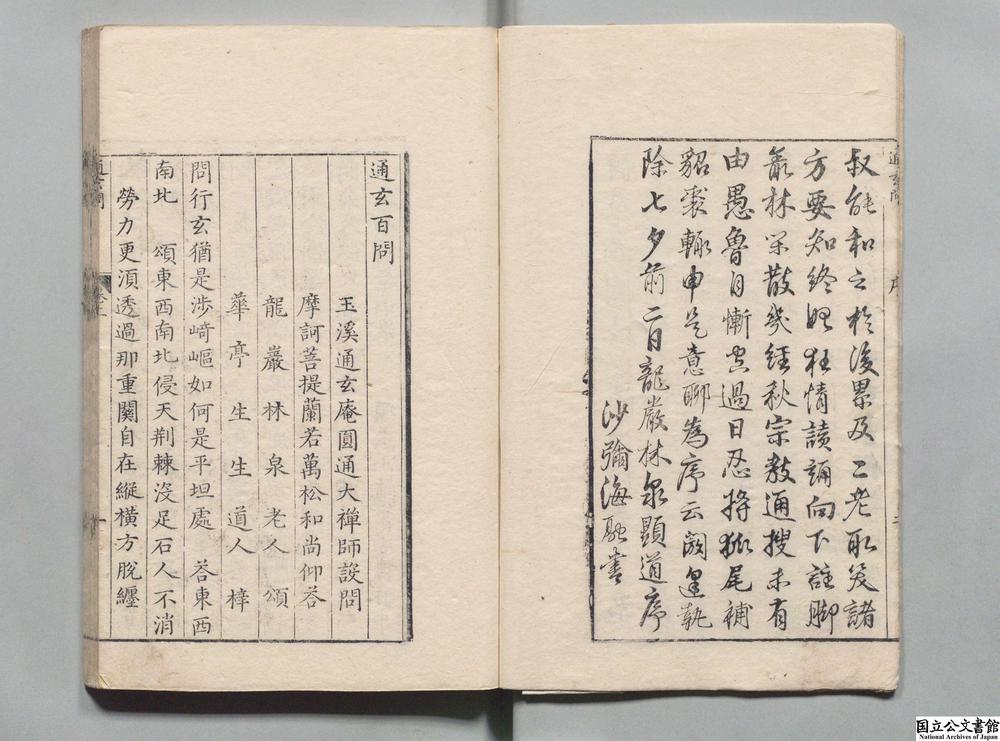 叔能和之於後累及二老取笑諸
方要知終始狂情請誦向下註脚
叢林罕散幾經秋宗教通搜未有
由愚魯自慚空過日忍將狐尾補
貂裘輙申是意聊為序云閼逢執
除七夕前二日龍巖林泉顯道序
沙彌海融書
通玄百問
玉溪通玄庵圓通大禪師設問
摩訶菩提蘭若萬松和尚仰荅
龍巖林泉老人頌
華亭生生道人梓
問行玄猶是涉﨑嶇如何是平坦處 荅東西
南北 頌東西南北侵天荆棘沒足石人不消
勞力更湏透過那重關自在縱橫方脫纏
国立公文書館
National Archives of Japan